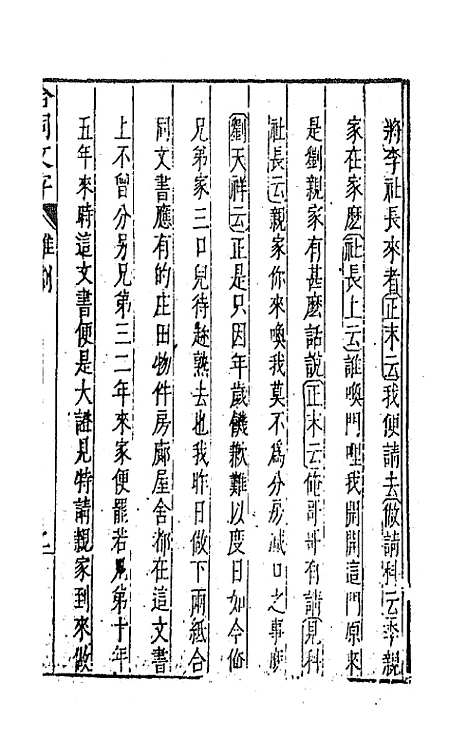 將李社長來者正末云我便請去做請科云李親
家在家麽社長上云誰喚門哩我開開這門原來
是劉親家有甚麽話說正末云俺哥哥有請見科
社長云親家你來喚我莫不爲分房減口之事麽
劉天祥云正是只因年歲饑歉難以度日如今俺
兄弟家三口兒待趂熟去也我昨日做下兩紙合
同文書應有的庄田物件房廊屋舍都在這文書
上不曾分另兄弟三二年來家便罷若兄弟十年
五年來時這文書便是大證見特請親家到來做
合同文字
雜劇